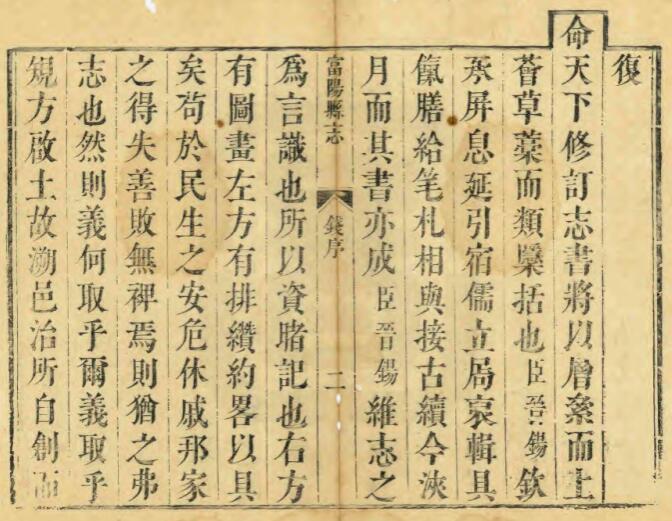 復
命天下修訂志書將以層絫而上
薈草藁而類檃括也臣晉錫欽
承屏息延引宿儒立局裒輯具
膳給笔札相與接古續今浹
月而其書亦成臣晉錫維志之
富陽縣志 錢序 二
爲言識也所以資睹記也右方
有圖畫左方有排纘約畧以具
矣苟於民生之安危休戚邦家
之得失善敗無裨焉則猶之弗
志也然則義何取乎爾義取乎
規方啟土故溯邑治所自創而